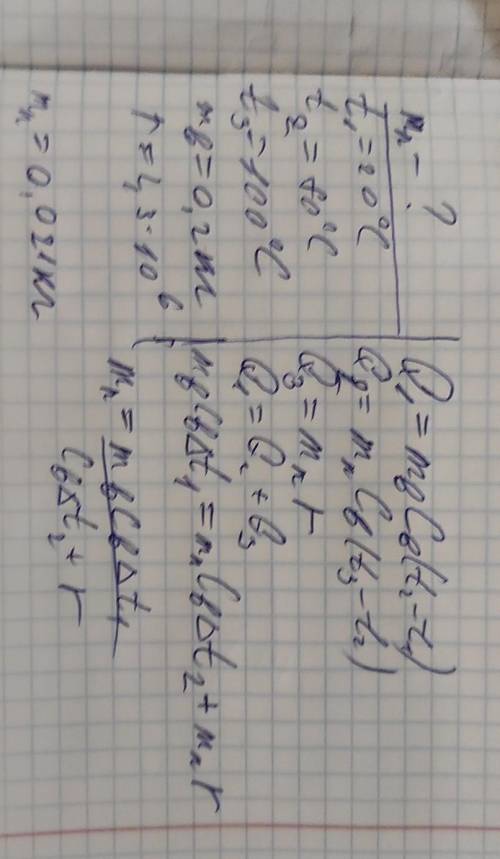 mₙ - ?
t₁ = 20°C
t₂ = 80°C
t₃ = 100°C
mв = 0,2 кг
r = 2,3·10⁶
Q₁ = mвCв(t₂-t₁)
Q₂ = mₙCв(t₃-t₂)
Q₃ = mₙr
Q₁ = Q₂ + Q₃
mвCвΔt₁ = mₙCвΔt₂ + mₙr
mₙ = mвCвΔt₁
CвΔt₂ + r
mₙ = 0,021 кг